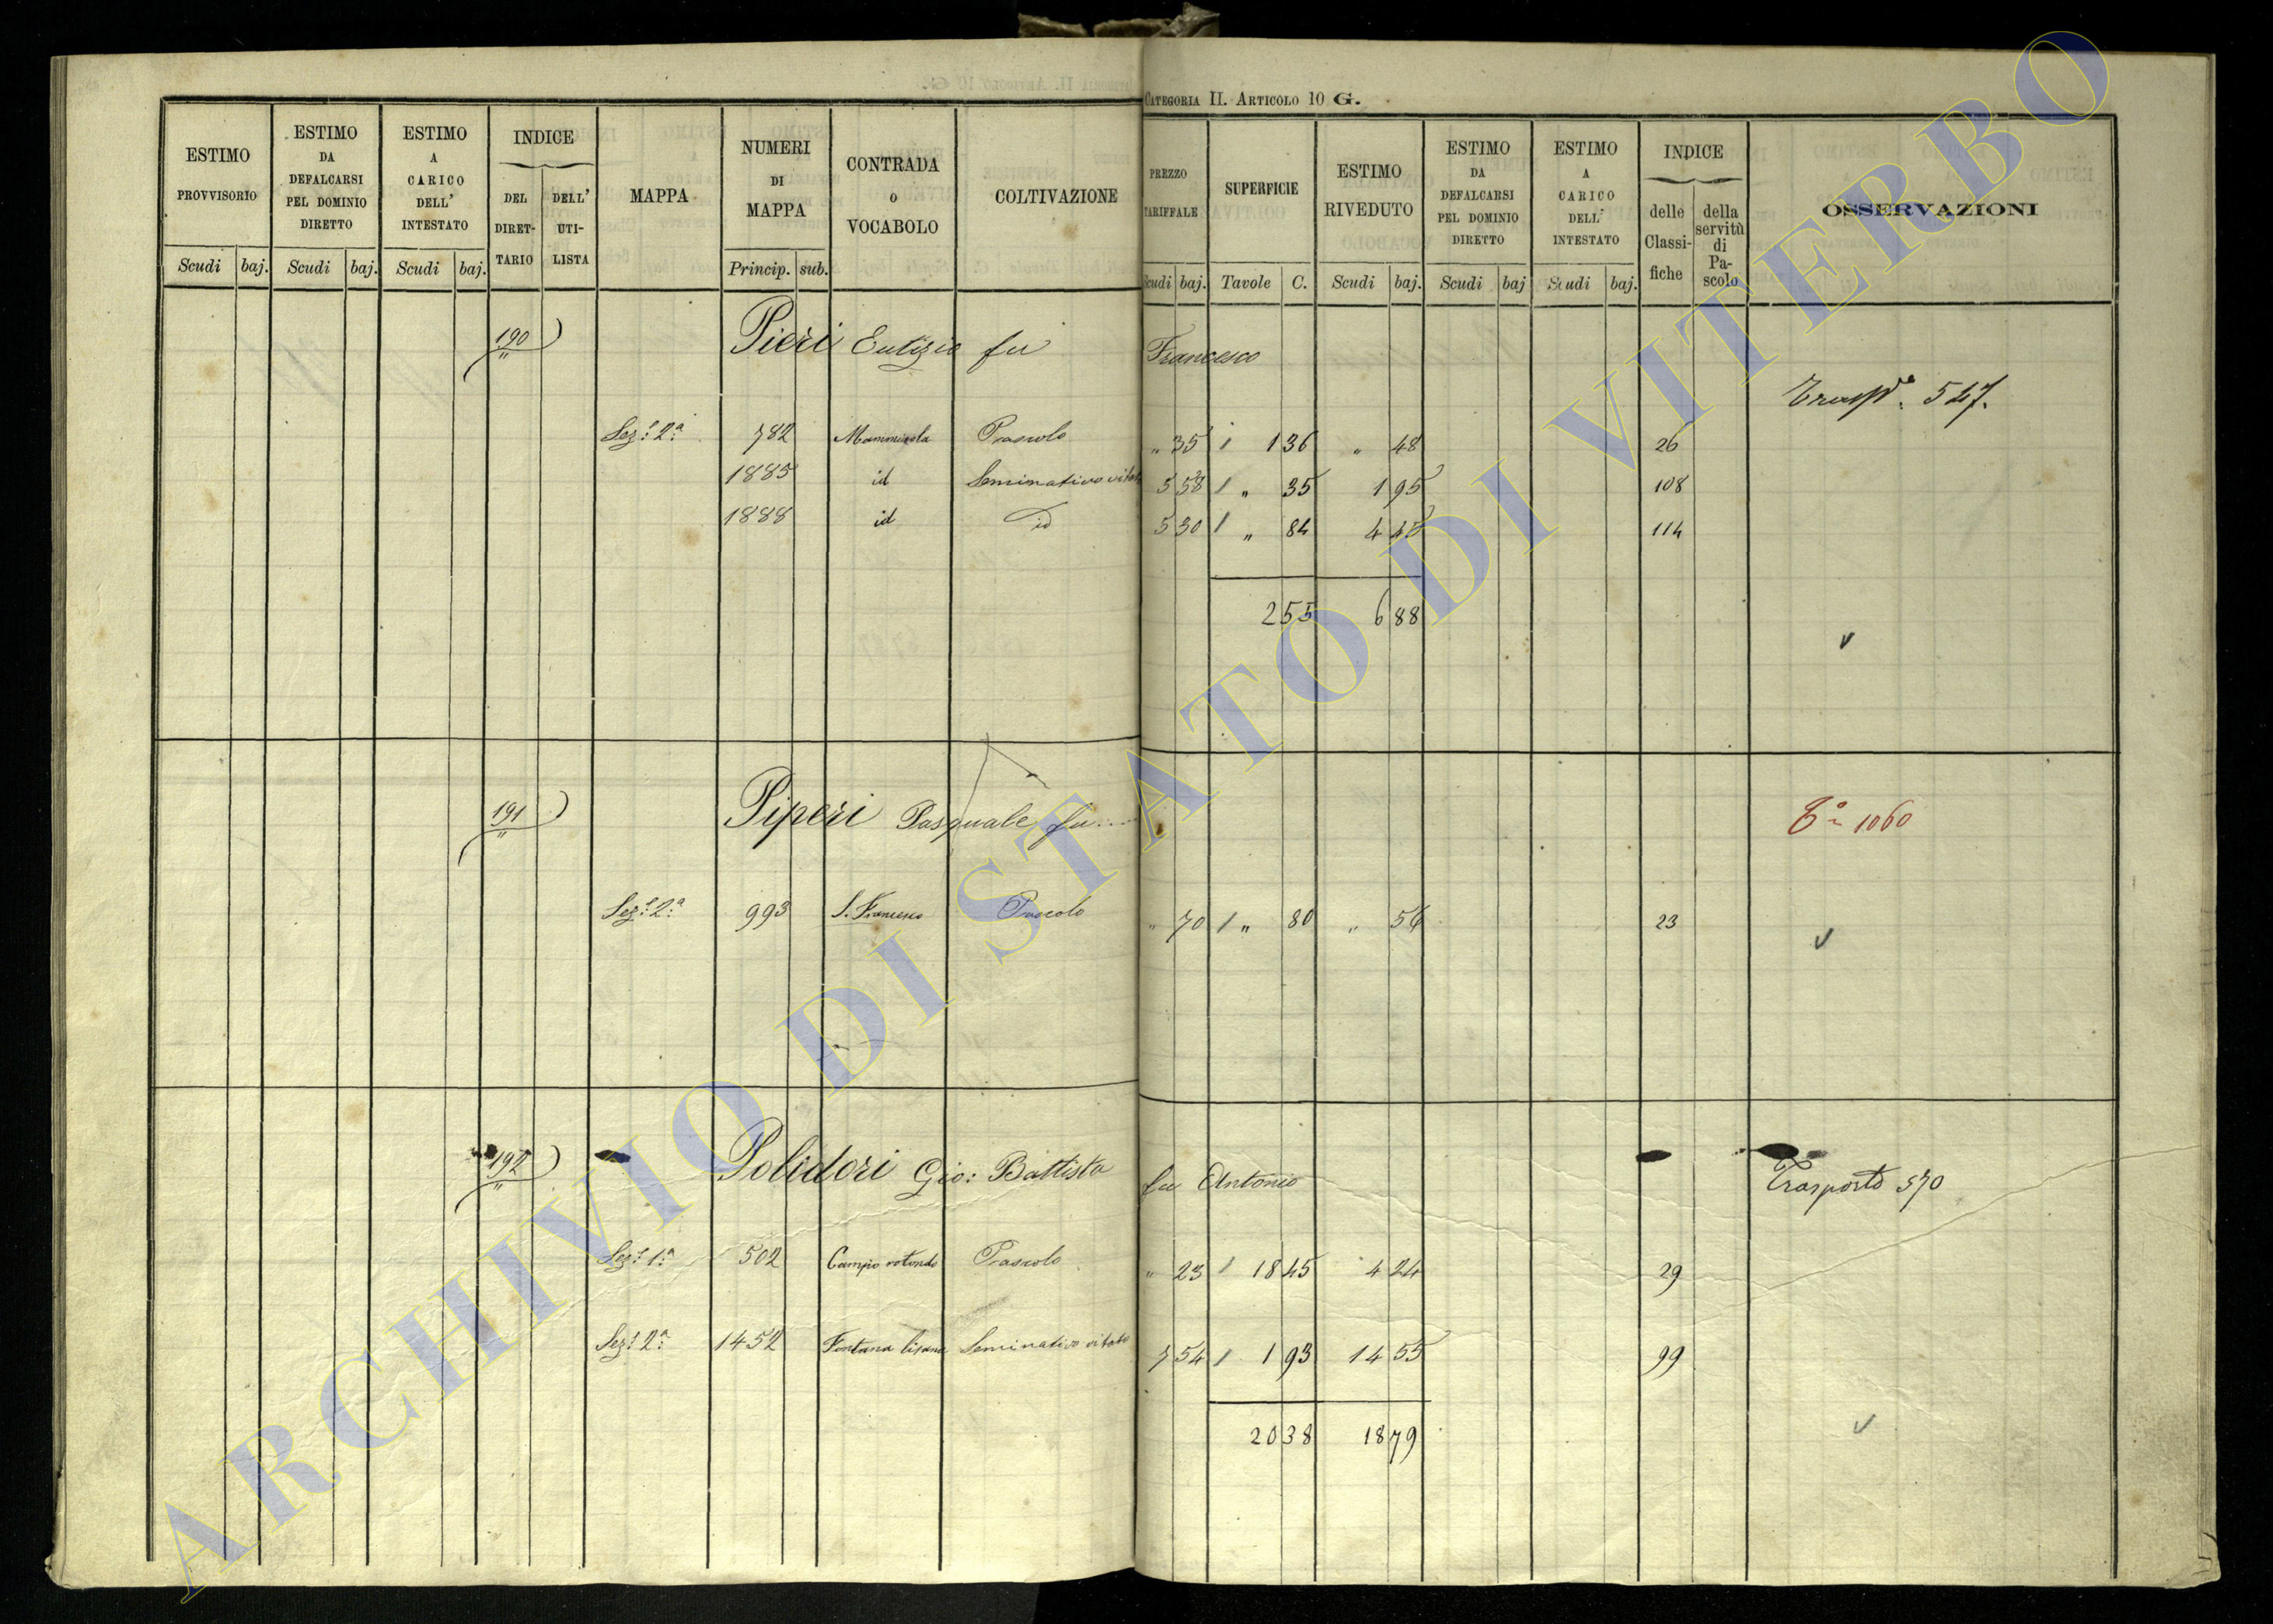 CATEGORIA II. ARTICOLO 10 G.
ESTIMO PROVVISORIO Scudi baj.
ESTIMO DA DEFALCARSI PEL DOMINIO DIRETTO Scudi baj.
ESTIMO A CARICO DELL' INTESTATO Scudi baj.
INDICE DEL DIRETTARIO DELL' UTILISTA
MAPPA
NUMERI DI MAPPA Princip. sub.
CONTRADA o VOCABOLO
COLTIVAZIONE
PREZZO TARIFFALE Scudi baj.
SUPERFICIE Tavole C.
ESTIMO RIVEDUTO Scudi baj.
ESTIMO DA DEFALCARSI PEL DOMINIO DIRETTO Scudi baj
ESTIMO A CARICO DELL' INTESTATO Scudi baj.
INDICE delle Classifiche della servitù di Pascolo
OSSERVAZIONI
190 Pieri Eutizio fu Francesco
Trasp.º 527.
Sez: 2ª 782 Pascolo " 35 1 36 " 48 26
1885 id Seminativo vitato 5 58 " 35 1 95 108
1888 id id 5 30 " 84 4 45 114
2 55 6 88
191 Piperi Pasquale fu....
Tº 1060
Sez: 2ª 993 S. Francesco Pascolo " 70 " 80 " 56 23
192 Polidori Gio: Battista fu Antonio
Trasporto 570
Sez: 1ª 502 Campo rotondo Pascolo " 23 18 45 4 24 29
Sez: 2ª 1452 Fontana Seminativo vitato 7 54 1 93 14 55 99
20 38 18 79
ARCHIVIO DI STATO DI VITERBO